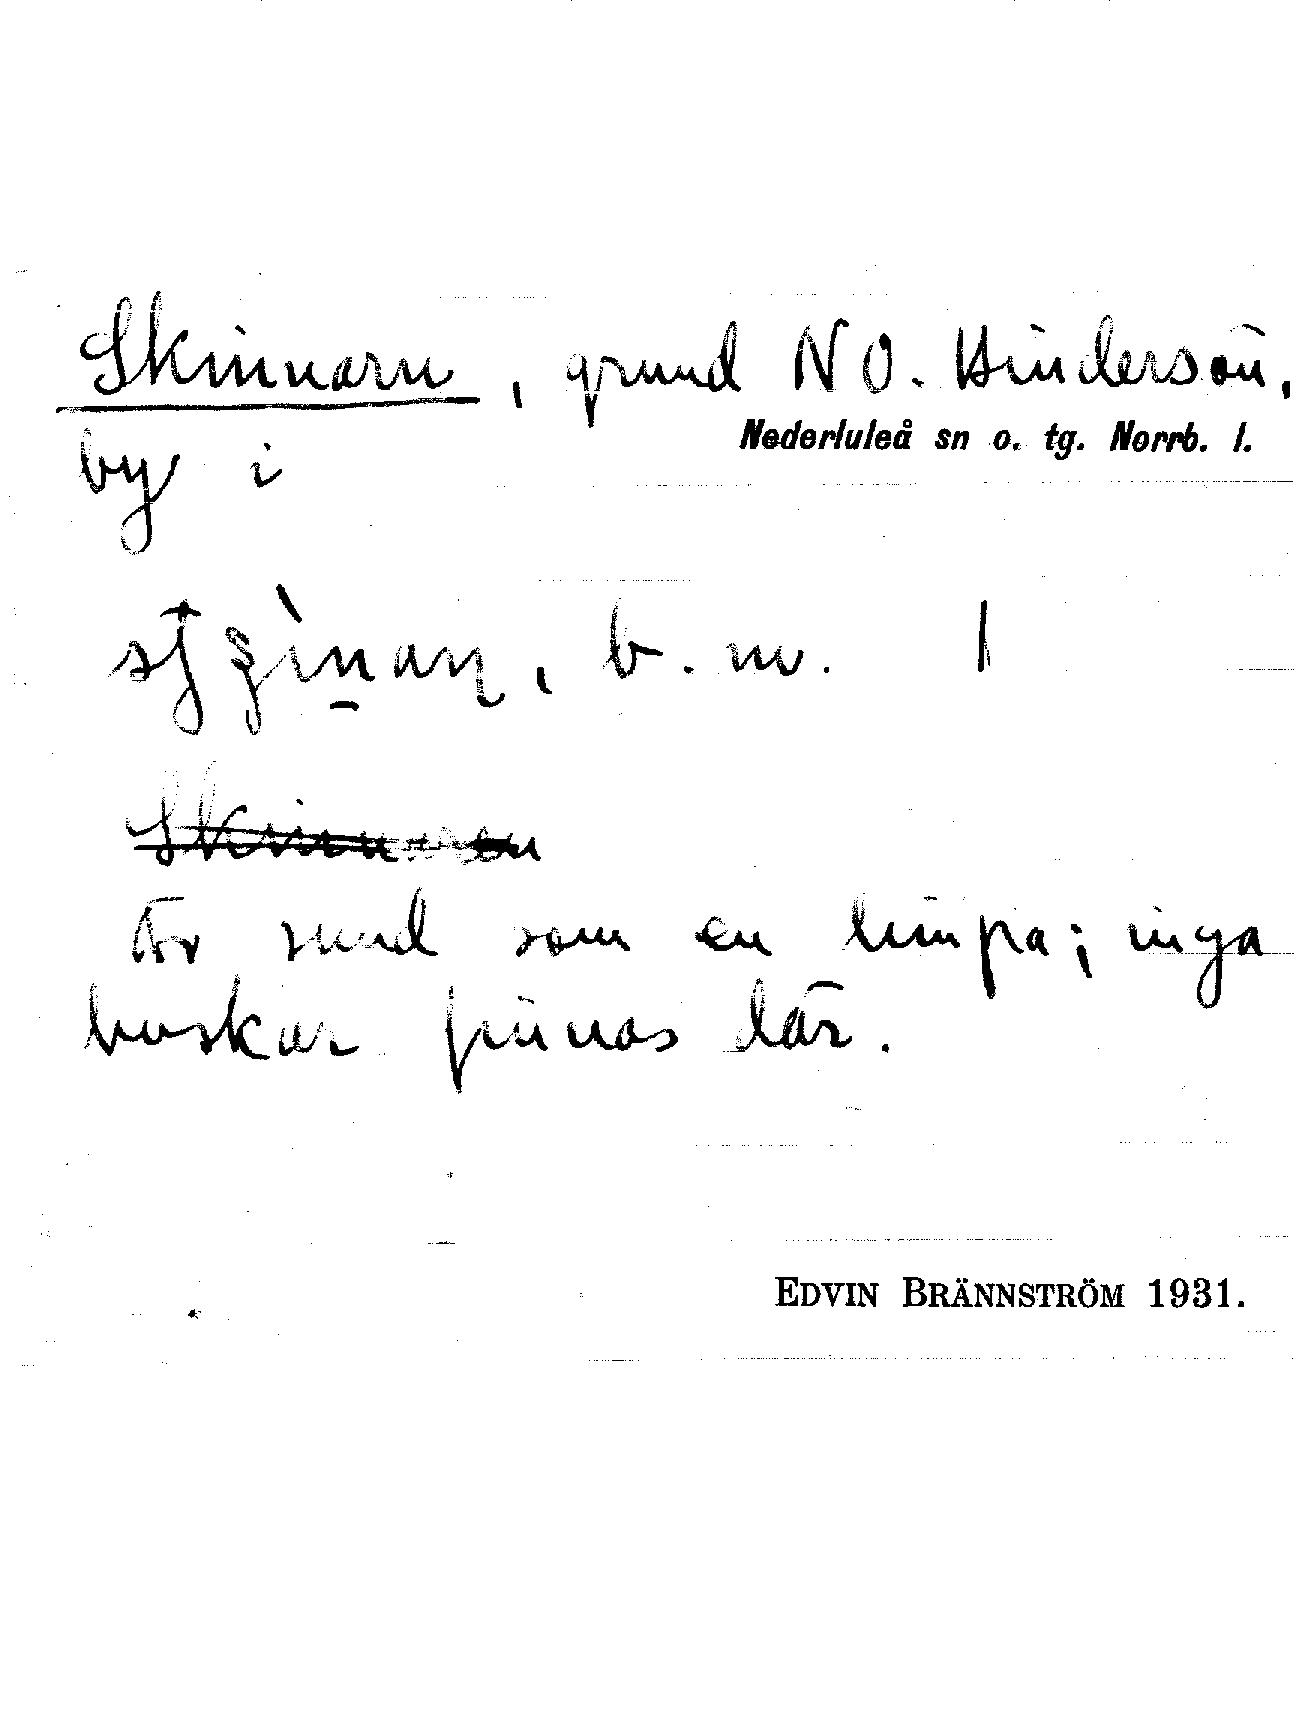 Skinnarn, grund NO. Hindersön,
Nederluleå sn o. tg. Norrb. l.
by i
b. m. 1
Skinnaren
Är rund som en limpa; inga
buskar finnas där.
EDVIN BRÄNNSTRÖM 1931.